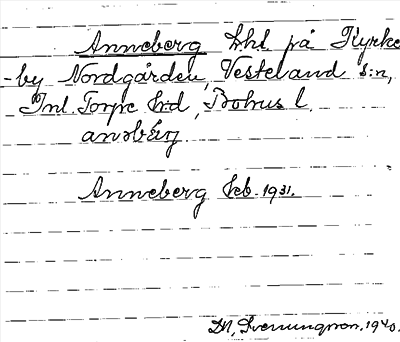 Anneberg lht på Kyrke
-by Nordgården, Vesteland s:n,
Inl. Torpe hd, Bohus l.
anəbärj
Anneberg Feb. 1931.
M. Svenungsson. 1940.